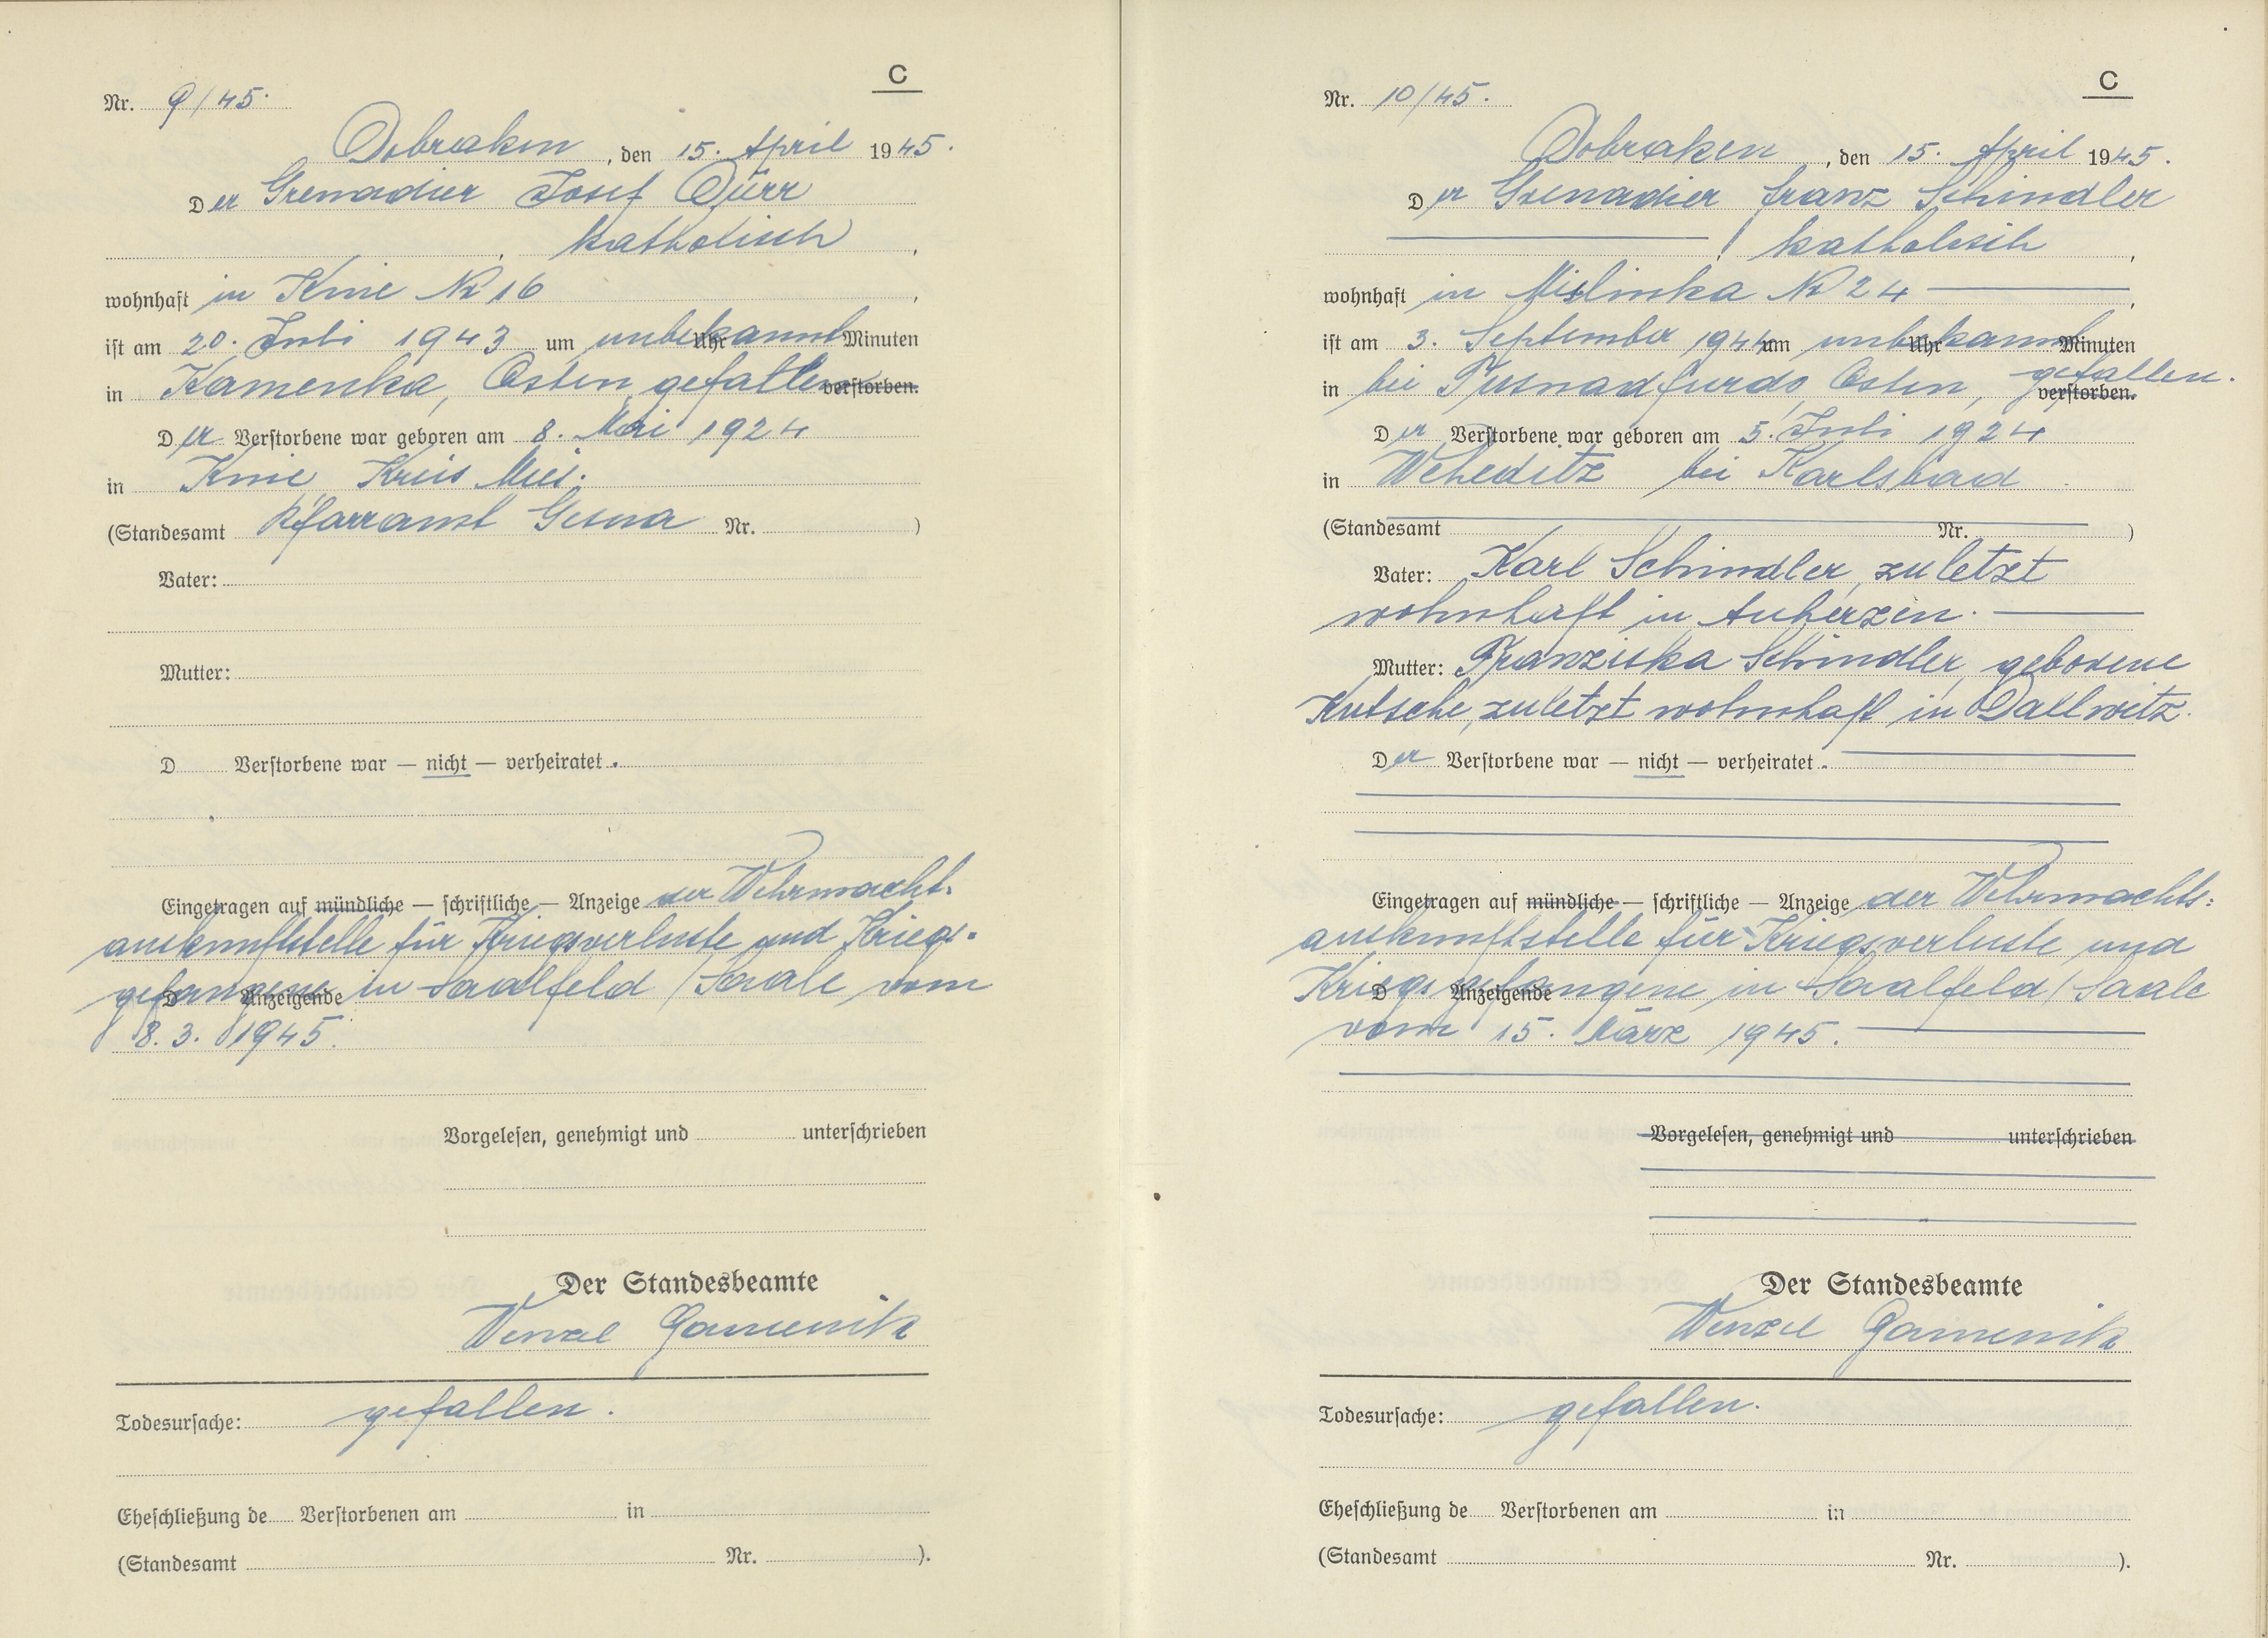 C
Nr. 9/45.
Dobraken, den 15. April 1945.
Der Grenadier Josef Dürr
, katholisch,
wohnhaft in Knie Nr 16,
ist am 20. Juli 1943 um unbekannt Uhr Minuten
in Kamenka, Osten gefallen verstorben.
Der Verstorbene war geboren am 8. Mai 1924
in Knie Kreis Mies.
(Standesamt Pfarramt Gesna Nr. )
Vater:
Mutter:
D Verstorbene war — nicht — verheiratet.
Eingetragen auf mündliche — schriftliche — Anzeige der Wehrmacht-
auskunftstelle für Kriegsverluste und Kriegs-
gefangene in Saalfeld / Saale vom
D Anzeigende
8.3. 1945.
Vorgelesen, genehmigt und unterschrieben
Der Standesbeamte
Wenzel
Todesursache: gefallen.
Eheschließung de Verstorbenen am in
(Standesamt Nr. ).
C
Nr. 10/45.
Dobraken, den 15. April 1945.
Der Grenadier Franz Schindler
, katholisch,
wohnhaft in Mislinka Nr 24,
ist am 3. September 1944 um unbekannt Uhr Minuten
in bei Osten, gefallen. verstorben.
Der Verstorbene war geboren am 5. Juli 1924
in Weheditz bei Karlsbad
(Standesamt Nr. )
Vater: Karl Schindler, zuletzt
wohnhaft in Auherzen.
Mutter: Franziska Schindler, geborene
Kutsche, zuletzt wohnhaft in Dallwitz.
Der Verstorbene war — nicht — verheiratet.
Eingetragen auf mündliche — schriftliche — Anzeige der Wehrmachts:
auskunftstelle für Kriegsverluste und
Kriegsgefangene in Saalfeld / Saale
D Anzeigende
vom 15. März 1945.
Vorgelesen, genehmigt und unterschrieben
Der Standesbeamte
Wenzel
Todesursache: gefallen.
Eheschließung de Verstorbenen am in
(Standesamt Nr. ).